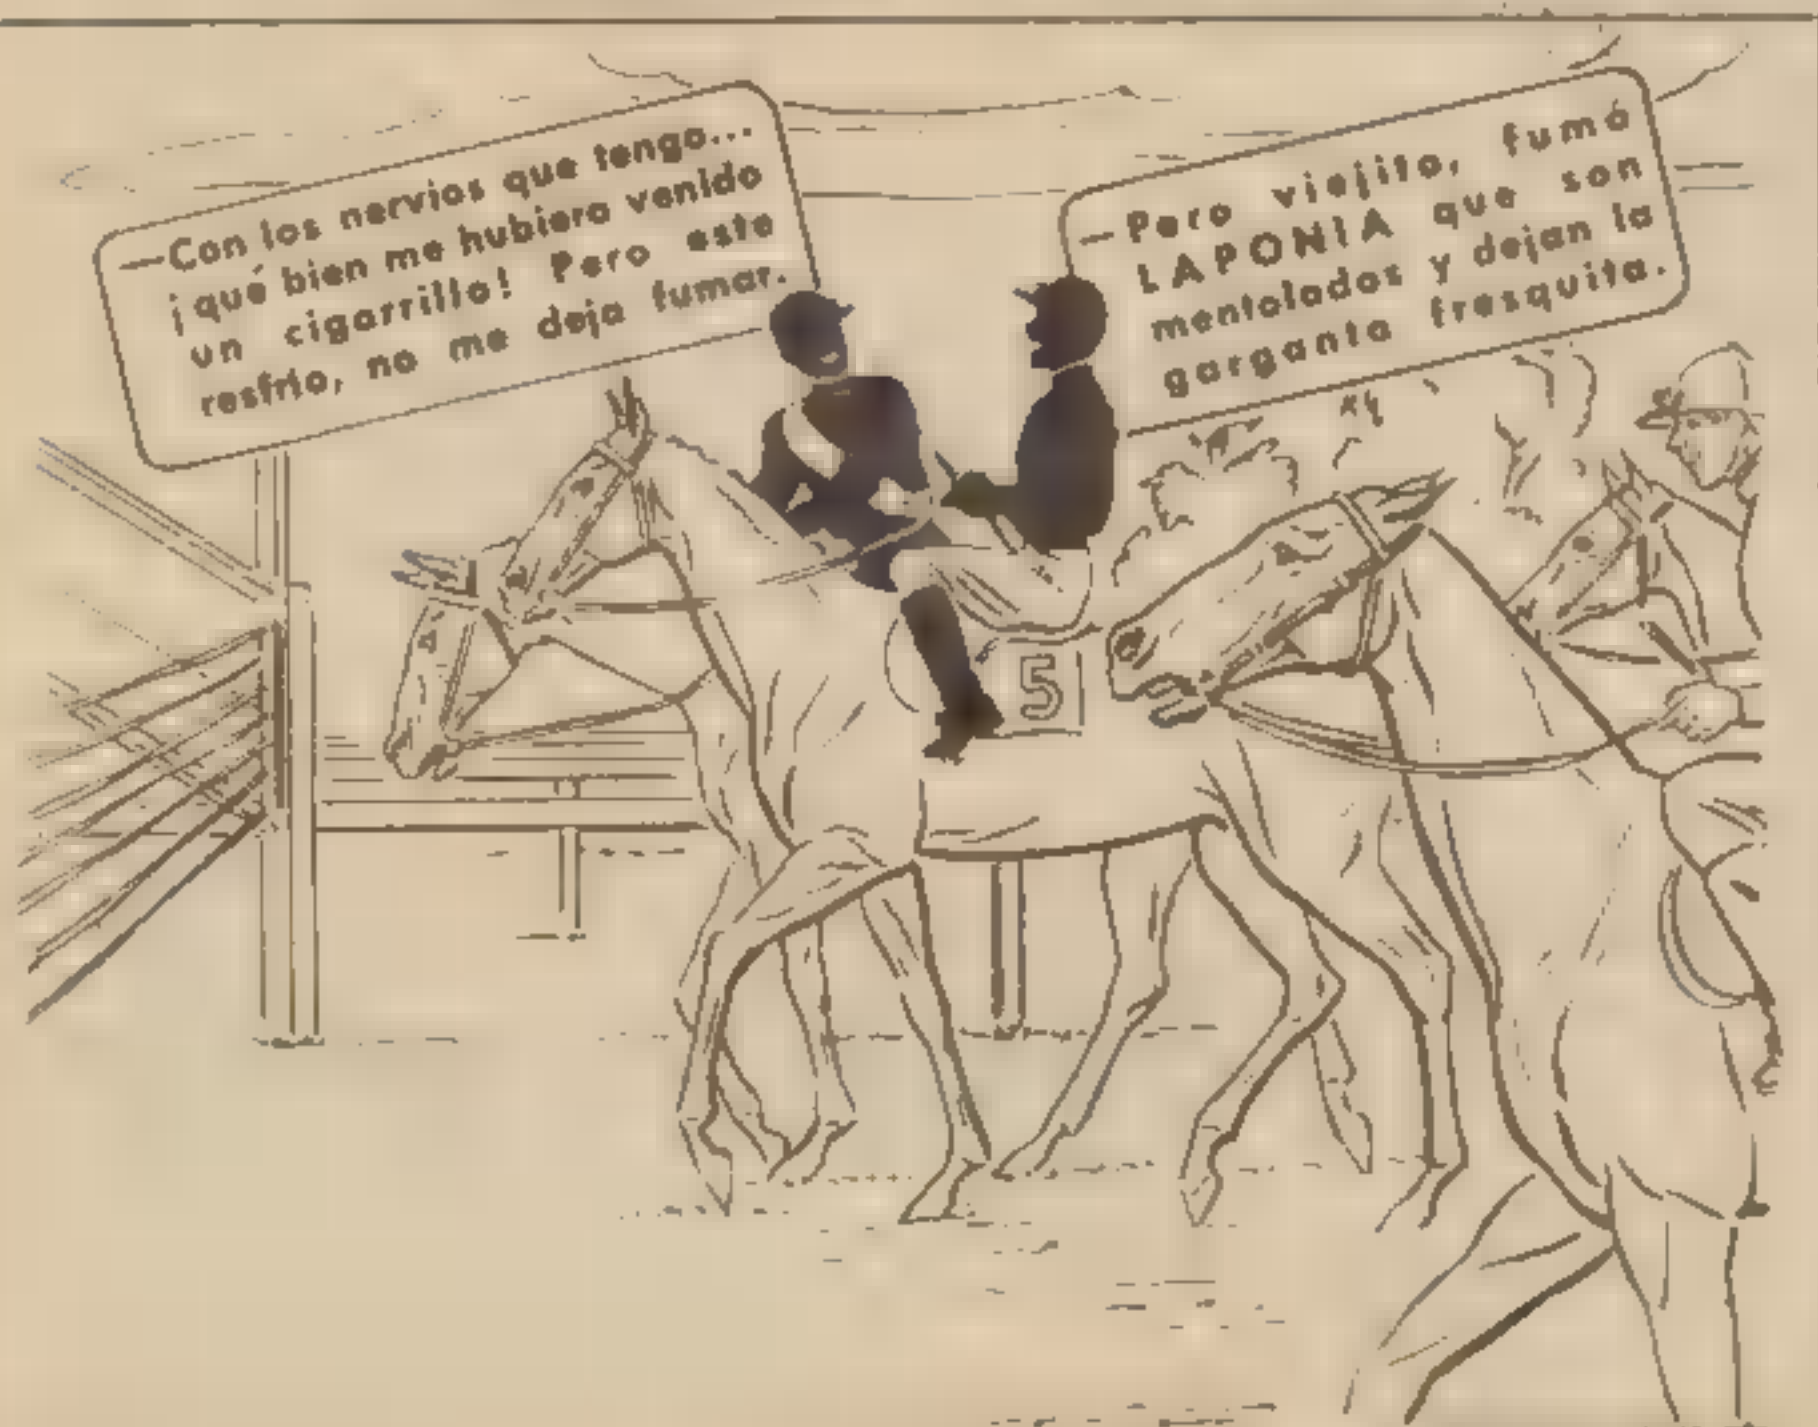 —Con los nervios que tengo...
¡qué bien me hubiera venido
un cigarrillo! Pero este
resfrío, no me deja fumar.
—Pero viejito, fumá
LAPONIA que son
mentolados y dejan la
garganta fresquita.
5